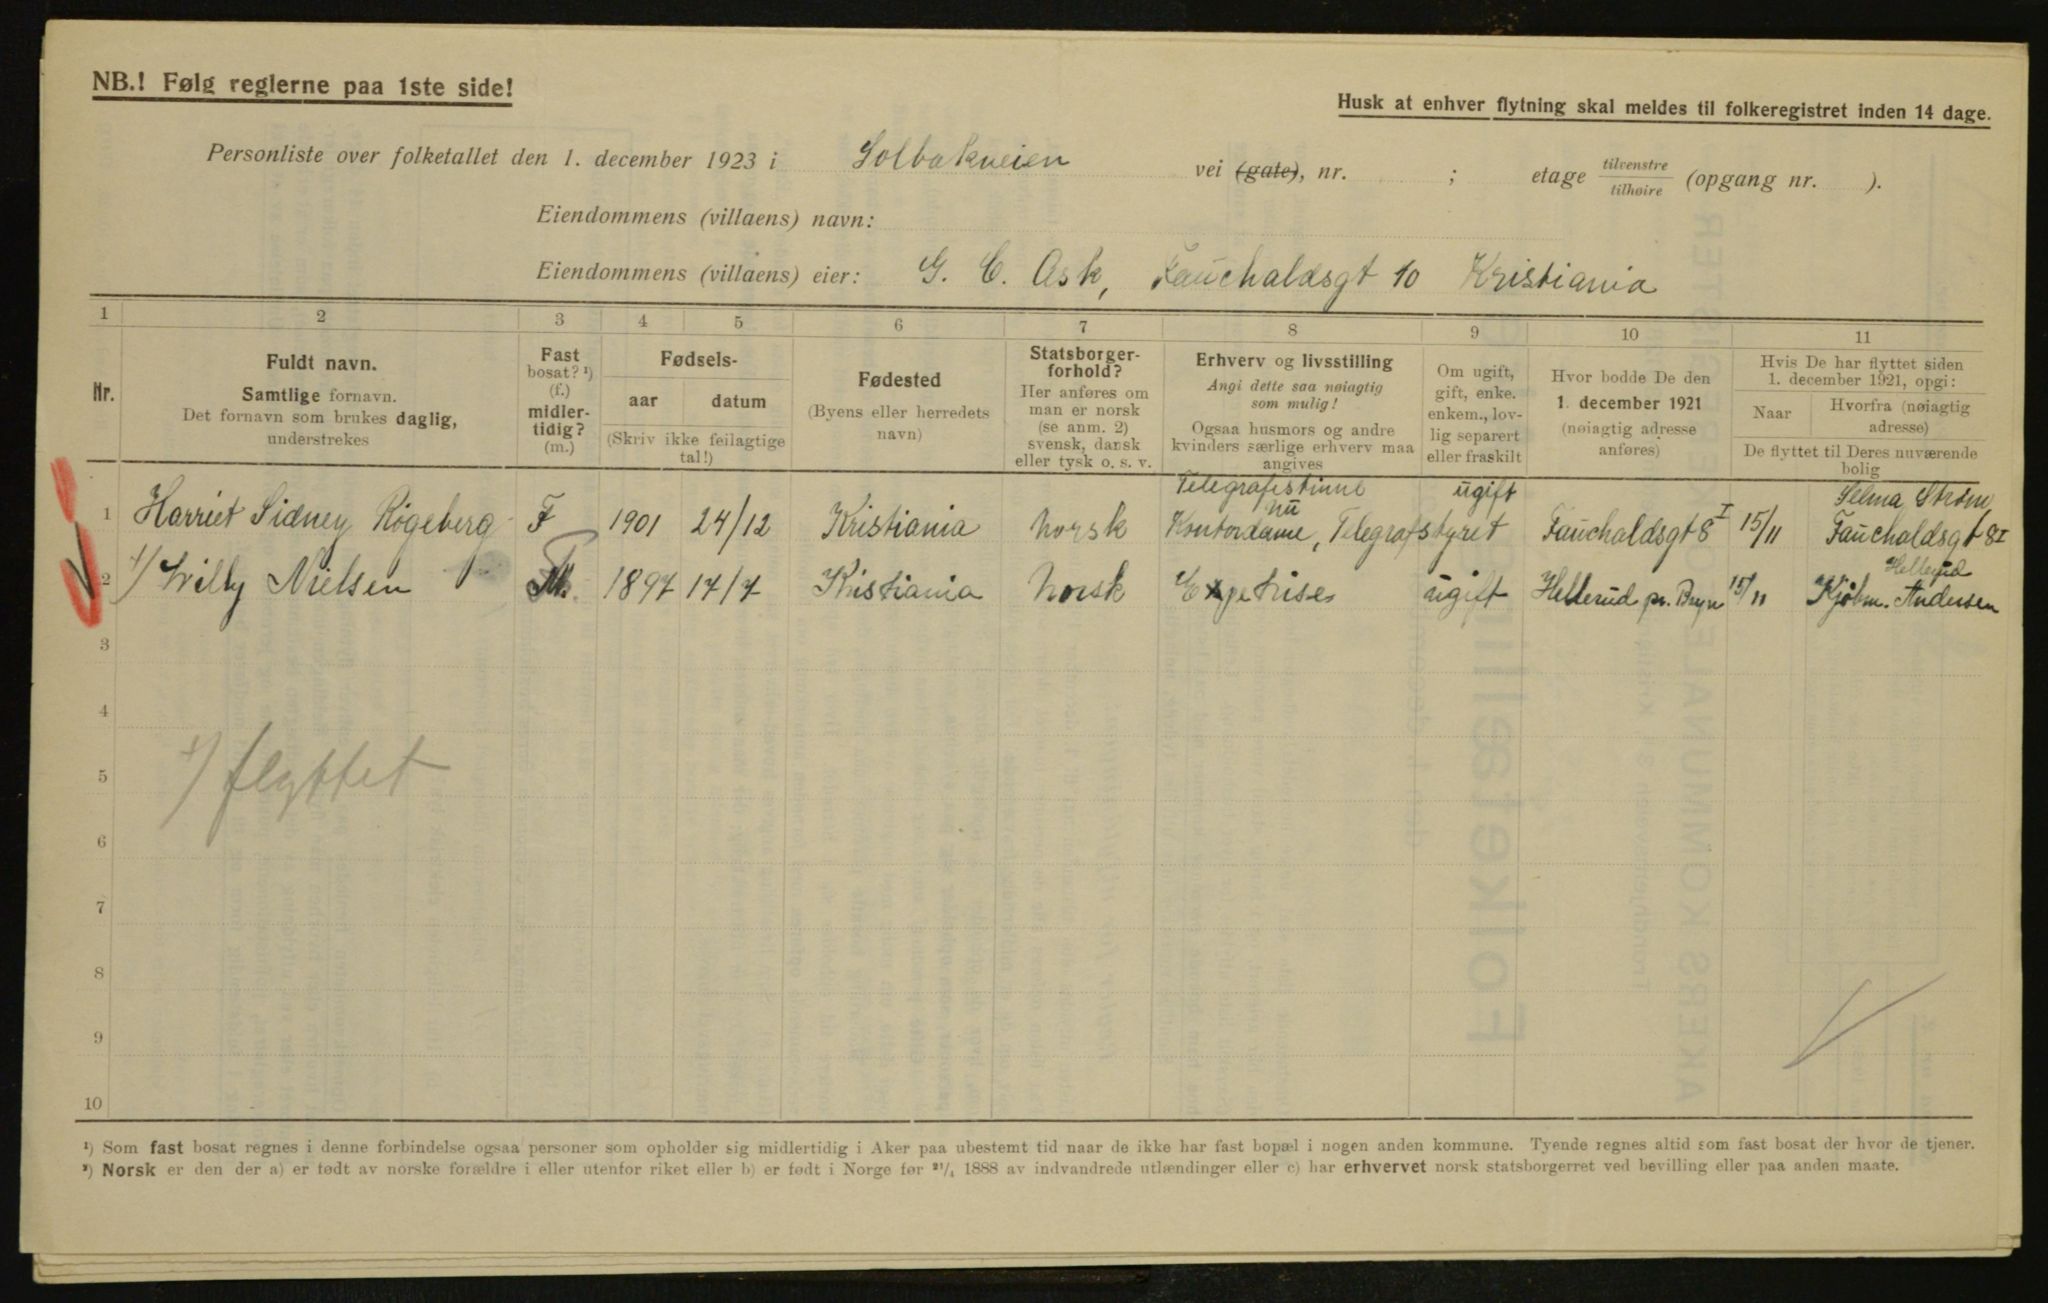 NB.! Følg reglerne paa 1ste side!
Husk at enhver flytning skal meldes til folkeregistret inden 14 dage.
Personliste over folketallet den 1. december 1923 i Solbakveien vei (gate), nr. ; etage tilvenstre tilhøire (opgang nr. ).
Eiendommens (villaens) navn:
Eiendommens (villaens) eier: G. C. Ask, Fauchaldsgt 10 Kristiania
1 2 3 4 5 6 7 8 9 10 11
Nr.
Fuldt navn.
Samtlige fornavn.
Det fornavn som brukes daglig,
understrekes
Fast
bosat? ¹)
(f.)
midler-
tidig?
(m.)
Fødsels-
aar datum
(Skriv ikke feilagtige
tal!)
Fødested
(Byens eller herredets
navn)
Statsborger-
forhold?
Her anføres om
man er norsk
(se anm. 2)
svensk, dansk
eller tysk o. s. v.
Erhverv og livsstilling
Angi dette saa nøiagtig
som mulig!
Ogsaa husmors og andre
kvinders særlige erhverv maa
angives
Om ugift,
gift, enke.
enkem., lov-
lig separert
eller fraskilt
Hvor bodde De den
1. december 1921
(nøiagtig adresse
anføres)
Hvis De har flyttet siden
1. december 1921, opgi:
Naar
Hvorfra (nøiagtig
adresse)
De flyttet til Deres nuværende
bolig
Telegrafistinne ugift Selma Strøm
nu
1 Harriet Sidney Røgeberg F 1901 24/12 Kristiania Norsk Kontordame, Telegrafstyret Fauchaldsgt 8 I 15/11 Fauchaldsgt 8 I
Hellerud
2 1/ Willy Nielsen M. 1897 17/7 Kristiania Norsk ugift Hellerud pr. Bryn 15/11 Kjøbm. Andersen
3
4
1/ flyttet
5
6
7
8
9
10
¹) Som fast bosat regnes i denne forbindelse ogsaa personer som opholder sig midlertidig i Aker paa ubestemt tid naar de ikke har fast bopæl i nogen anden kommune. Tyende regnes altid som fast bosat der hvor de tjener.
²) Norsk er den der a) er født av norske forældre i eller utenfor riket eller b) er født i Norge før ²¹/₄ 1888 av indvandrede utlændinger eller c) har erhvervet norsk statsborgerret ved bevilling eller paa anden maate.